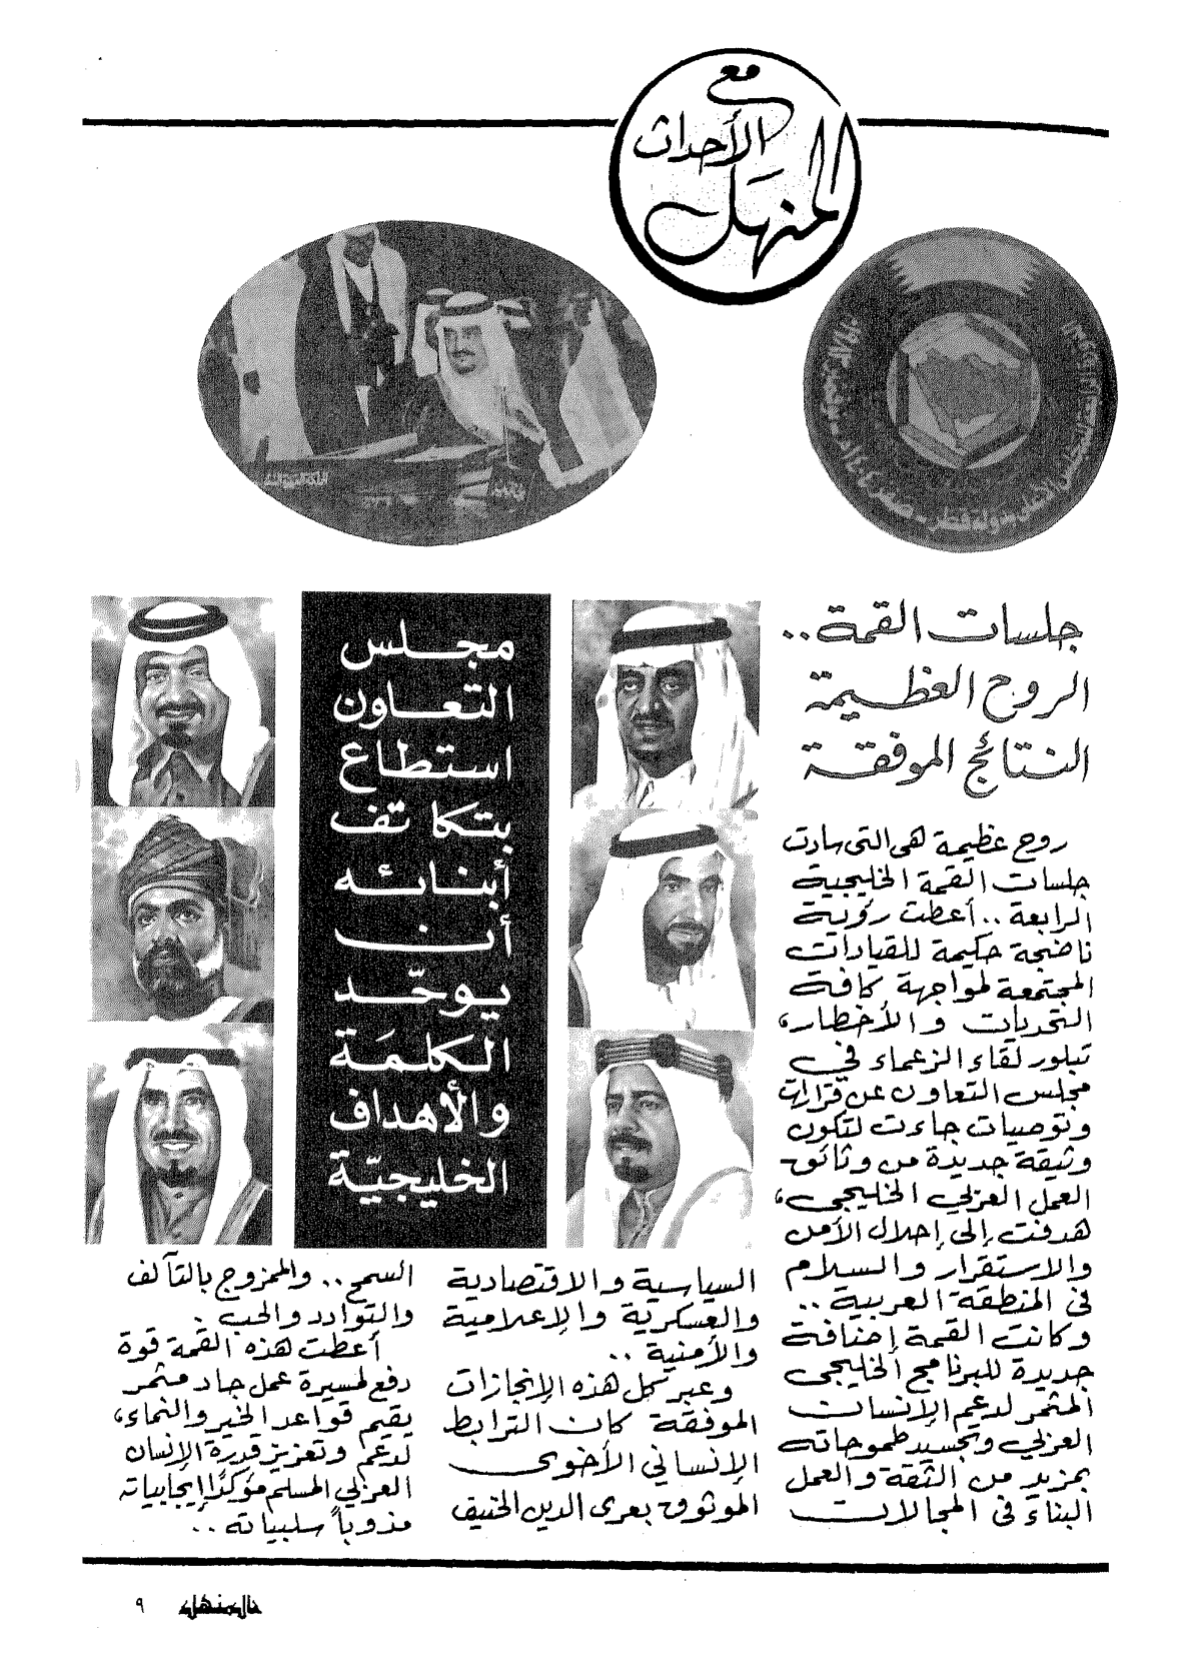 مع
الأحداث
المنهل
صفر ١٤٠٤هـ - نوفمبر ١٩٨٣
بدولة قطر
جلسات القمة..
الروح العظيمة
النتائج الموفقة
مجلس
التعاون
استطاع
بتكاتف
أبنائه
أن
يوحّد
الكلمَة
والأهداف
الخليجيّة
روح عظيمة هى التى سادت
جلسات القمة الخليجية
الرابعة.. أعطت رؤية
ناضجة حكيمة للقيادات
المجتمعة لمواجهة كافة
التحديات والأخطار،
تبلور لقاء الزعماء في
مجلس التعاون عن قرارات
وتوصيات جاءت لتكون
وثيقة جديدة من وثائق
العمل العربي الخليجي،
هدفت إلى إحلال الأمن
والاستقرار والسلام
في المنطقة العربية..
وكانت القمة إضافة
جديدة للبرنامج الخليجي
المثمر لدعم الإنسان
العربي وتجسيد طموحاته
بمزيد من الثقة والعمل
البناء في المجالات
السياسية والاقتصادية
والعسكرية والإعلامية
والأمنية..
وعبر كل هذه الإنجازات
الموفقة كان الترابط
الإنساني الأخوى
الموثوق بعرى الدين الحنيف
السمح.. والممزوج بالتآلف
والتوادد والحب.
أعطت هذه القمة قوة
دفع لمسيرة عمل جاد مثمر
يقيم قواعد الخير والنماء،
لدعم وتعزيز قدرة الإنسان
العربي المسلم مؤكدًا إيجابياته
مذوباً سلبياته..
المنهل ٩